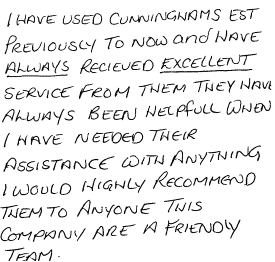 I HAVE USED CUNNINGHAMS EST
PREVIOUSLY TO NOW and HAVE
ALWAYS RECIEVED EXCELLENT
SERVICE FROM THEM THEY HAVE
ALWAYS BEEN HELPFULL WHEN
I HAVE NEEDED THEIR
ASSISTANCE WITH ANYTHING
I WOULD HIGHLY RECOMMEND
THEM TO ANYONE THIS
COMPANY ARE A FRIENDLY
TEAM.